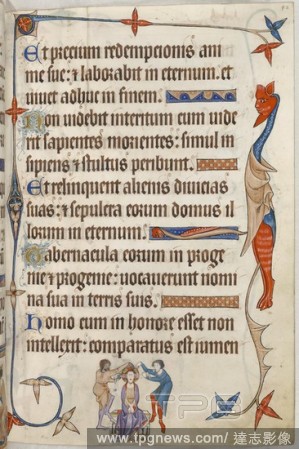 Et precium redempcionis ani
me sue: ⁊ laborabit in eternum. et
uiuet adhuc in finem.
Non uidebit interitum cum uide
rit sapientes morientes: simul in
sipiens ⁊ stultus peribunt.
Et relinquent alienis diuicias
suas: ⁊ sepulcra eorum domus il
lorum in eternum.
Tabernacula eorum in proge
nie ⁊ progenie: uocauerunt nomi
na sua in terris suis.
Homo cum in honore esset non
intellexit: comparatus est iumen
TPG
www.tpgnews.com / 達志影像